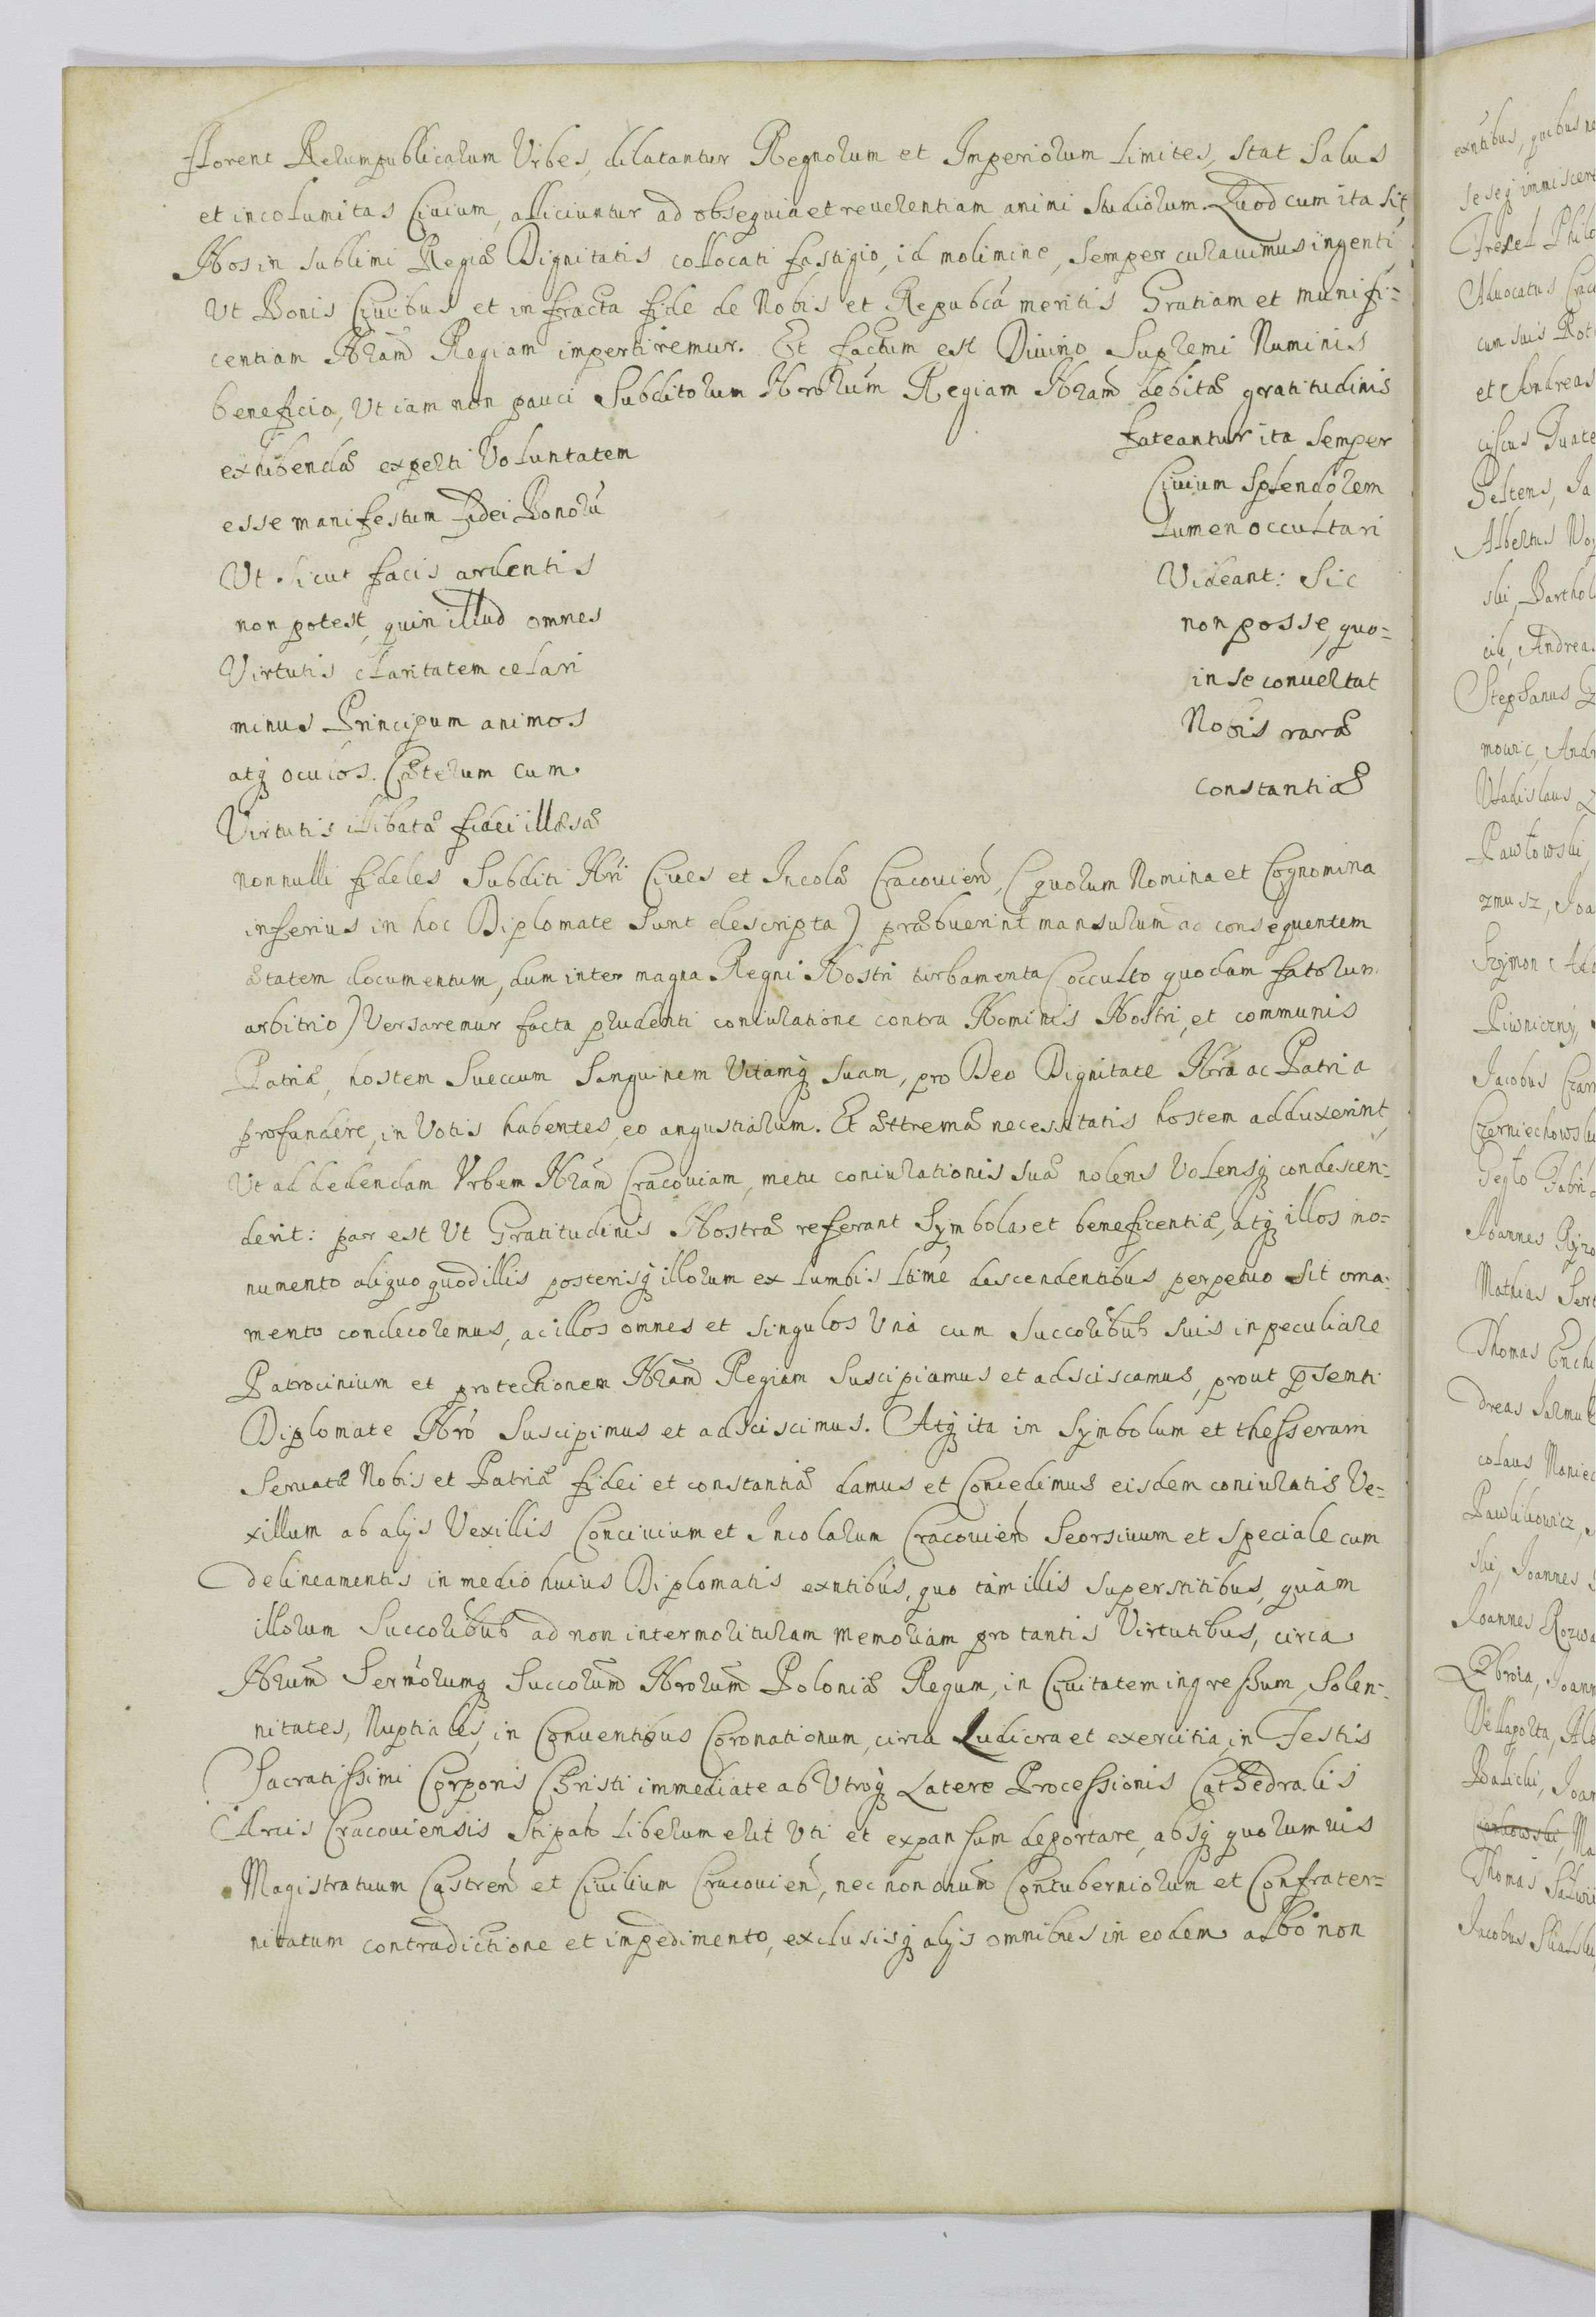 florent Rerumpublicarum Urbes, dilatantur Regnorum et Imperiorum limites, stat salus
et incolumitas Civium, alliciuntur ad obsequia et reverentiam animi studiorum. Quod cum ita sit,
Nos in sublimi Regiæ Dignitatis collocati fastigio, id molimine, semper curavimus ingenti,
Ut Bonis Civibus et infracta fide de Nobis et Repubca meritis Gratiam et munifi=
centiam Nram Regiam impertiremur. Et factum est Divino Supremi Numinis
beneficio, Ut iam non pauci Subditorum Nrorum Regiam Nram debitæ gratitudinis
exhibendæ experti Voluntatem fateantur ita semper
esse manifestum fidei Bonorũ Civium splendorem
Ut sicut facis ardentis lumen occultari
non potest, quin illud omnes Videant: Sic
Virtutis claritatem celari non posse, quo=
minus Principum animos in se convertat
atq oculos. Cæterum cum Nobis raræ
Virtutis illibatæ fidei illæsæ constantiæ
nonnulli fideles Subditi Nri Cives et Incolæ Cracovien, (quorum Nomina et Cognomina
inferius in hoc Diplomate sunt descripta) præbuerint mansurum ac consequentem
ætatem documentum, dum inter magna Regni Nostri turbamenta (occulto quodam fatorum
arbitrio) Versaremur facta prudenti coniuratione contra Nominis Nostri, et communis
Patriæ, hostem Suecum Sanguinem Vitamq suam, pro Deo Dignitate Nra ac Patria
profundere, in Votis habentes, eo angustiarum. Et æxtremæ necessitatis hostem adduxerint,
Ut ad dedendam Urbem Nram Cracoviam, metu coniurationis suæ nolens Volensq condescen=
derit: par est Ut Gratitudinis Nostræ referant Symbola, et beneficentiæ, atq illos mo=
numento aliquo quod illis posterisq illorum ex lumbis ltime descendentibus perpetuo sit orna=
mento condecoremus, ac illos omnes et singulos Una cum Succoribus suis in peculiare
Patrocinium et protectionem Nram Regiam suscipiamus et adsciscamus, prout psenti
Diplomate Nro suscipimus et adsciscimus. Atq ita in symbolum et thesseram
servatæ Nobis et Patriæ fidei et constantiæ damus et Concedimus eisdem coniuratis Ve=
xillum ab alijs Vexillis Concivium et Incolarum Cracovien seorsivum et speciale cum
delineamentis in medio huius Diplomatis exntibus, quo tàm illis superstitibus, quàm
illorum Succoribus ad non intermorituram memoriam pro tantis Virtutibus, circa
Nrum Sermorumq Succorum Nrorum Poloniæ Regum, in Civitatem ingressum, Solen=
nitates, Nuptiales, in Conventibus Coronationum, circa Ludicra et exercitia, in Festis
Sacratissimi Corporis Christi immediate ab Utroq Latere Processionis Cathedralis
Arcis Cracoviensis stipato liberum erit Uti et expansum deportare, absq quorumvis
Magistratuum Castren et Civilium Cracovien, nec non onum Contuberniorum et Confrater=
nitatum contradictione et impedimento, exclusisq alijs omnibus in eodem albo non
exntibus, quibus
Advocatus
cum suis
et Andreas
Albertus
Andreas
Stephanus
Vladislaus
Pawłowski
Szymon
Piwniczny
Jacobus
Joannes
Mathias
Thomas
Joannes
Joannes
Thomas
Jacobus